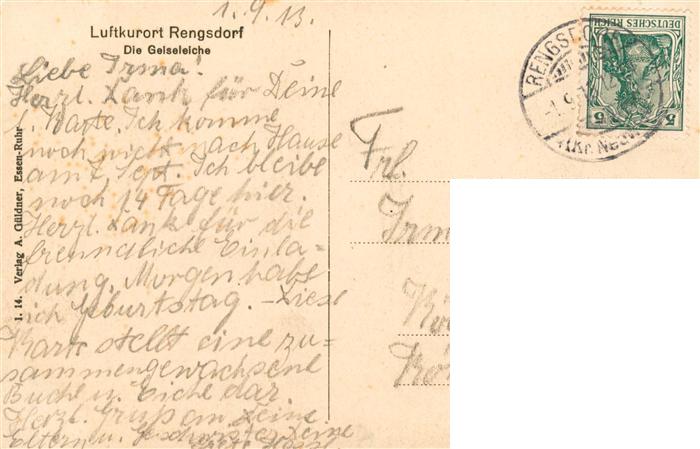 1.9.13.
Luftkurort Rengsdorf
Die Geiseleiche
Liebe Irma!
Herzl. Dank für Deine
l. Karte. Ich komme
noch nicht nach Hause
am 7. Sept. Ich bleibe
noch 14 Tage hier.
Herzl. Dank für die
freundliche Einla=
dung. Morgen habe
ich Geburtstag. – Diese
Karte stellt eine zu=
sammengewachsene
Buche u. Eiche dar
Herzl. Gruß an Deine
Eltern u. Geschwister Deine
1. 14. Verlag A. Güldner, Essen-Ruhr
Frl.
Irm
Kö
DEUTSCHES REICH
5 5
RENGSDO
(Kr. Neuw